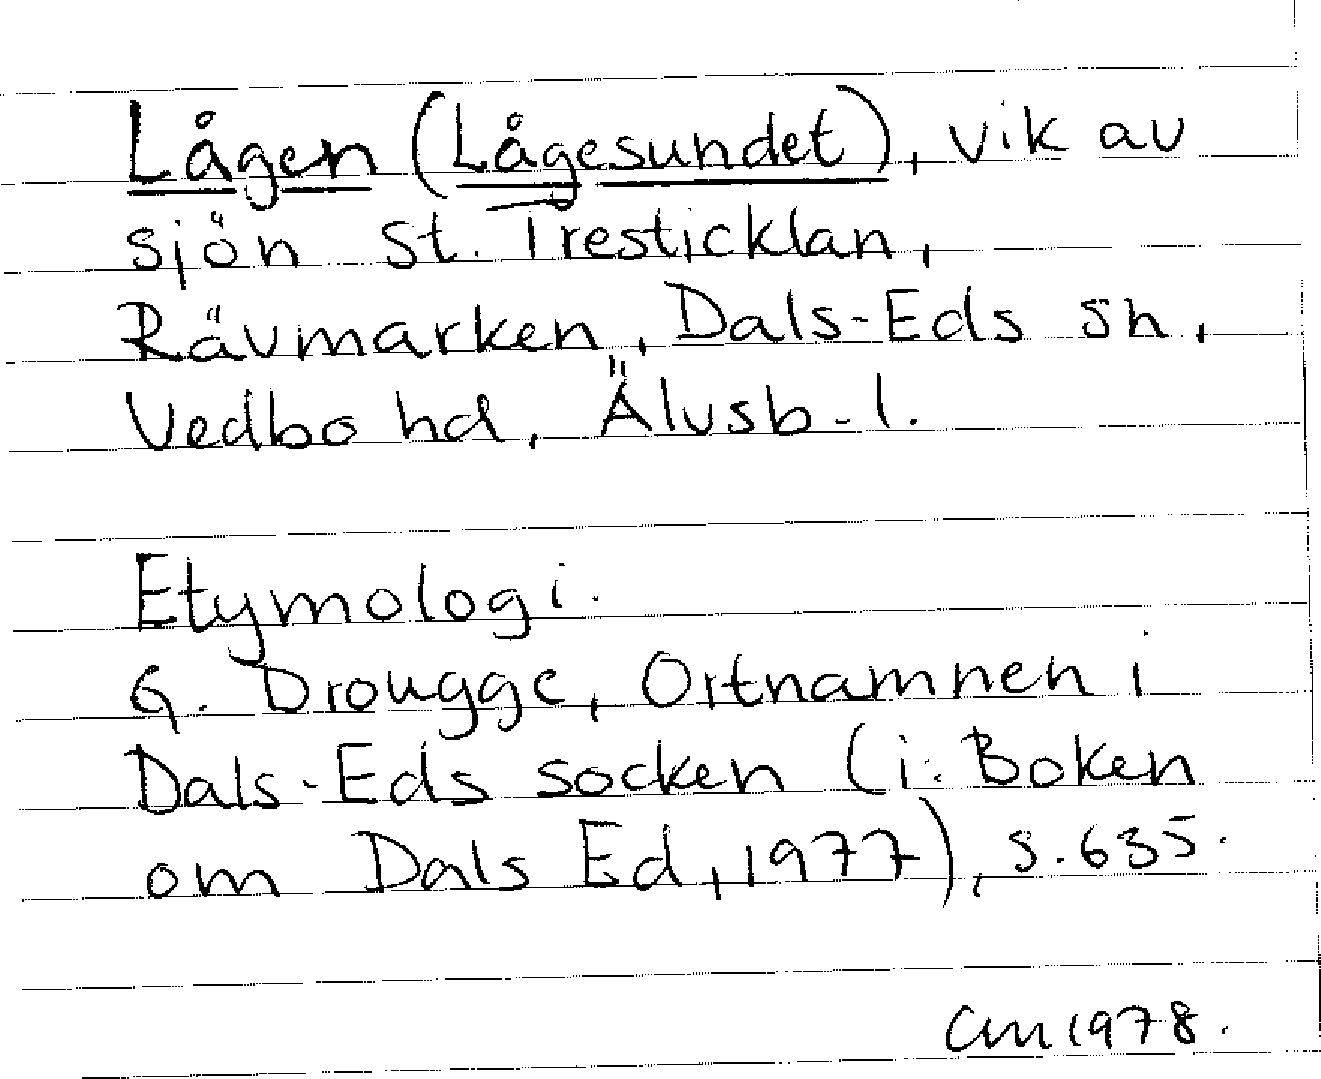 Lågen (Lågesundet), vik av
sjön St. Tresticklan,
Rävmarken, Dals-Eds sn,
Vedbo hd, Älvsb. l.
Etymologi.
G. Drougge, Ortnamnen i
Dals-Eds socken (i: Boken
om Dals Ed, 1977), s. 635.
CM 1978.